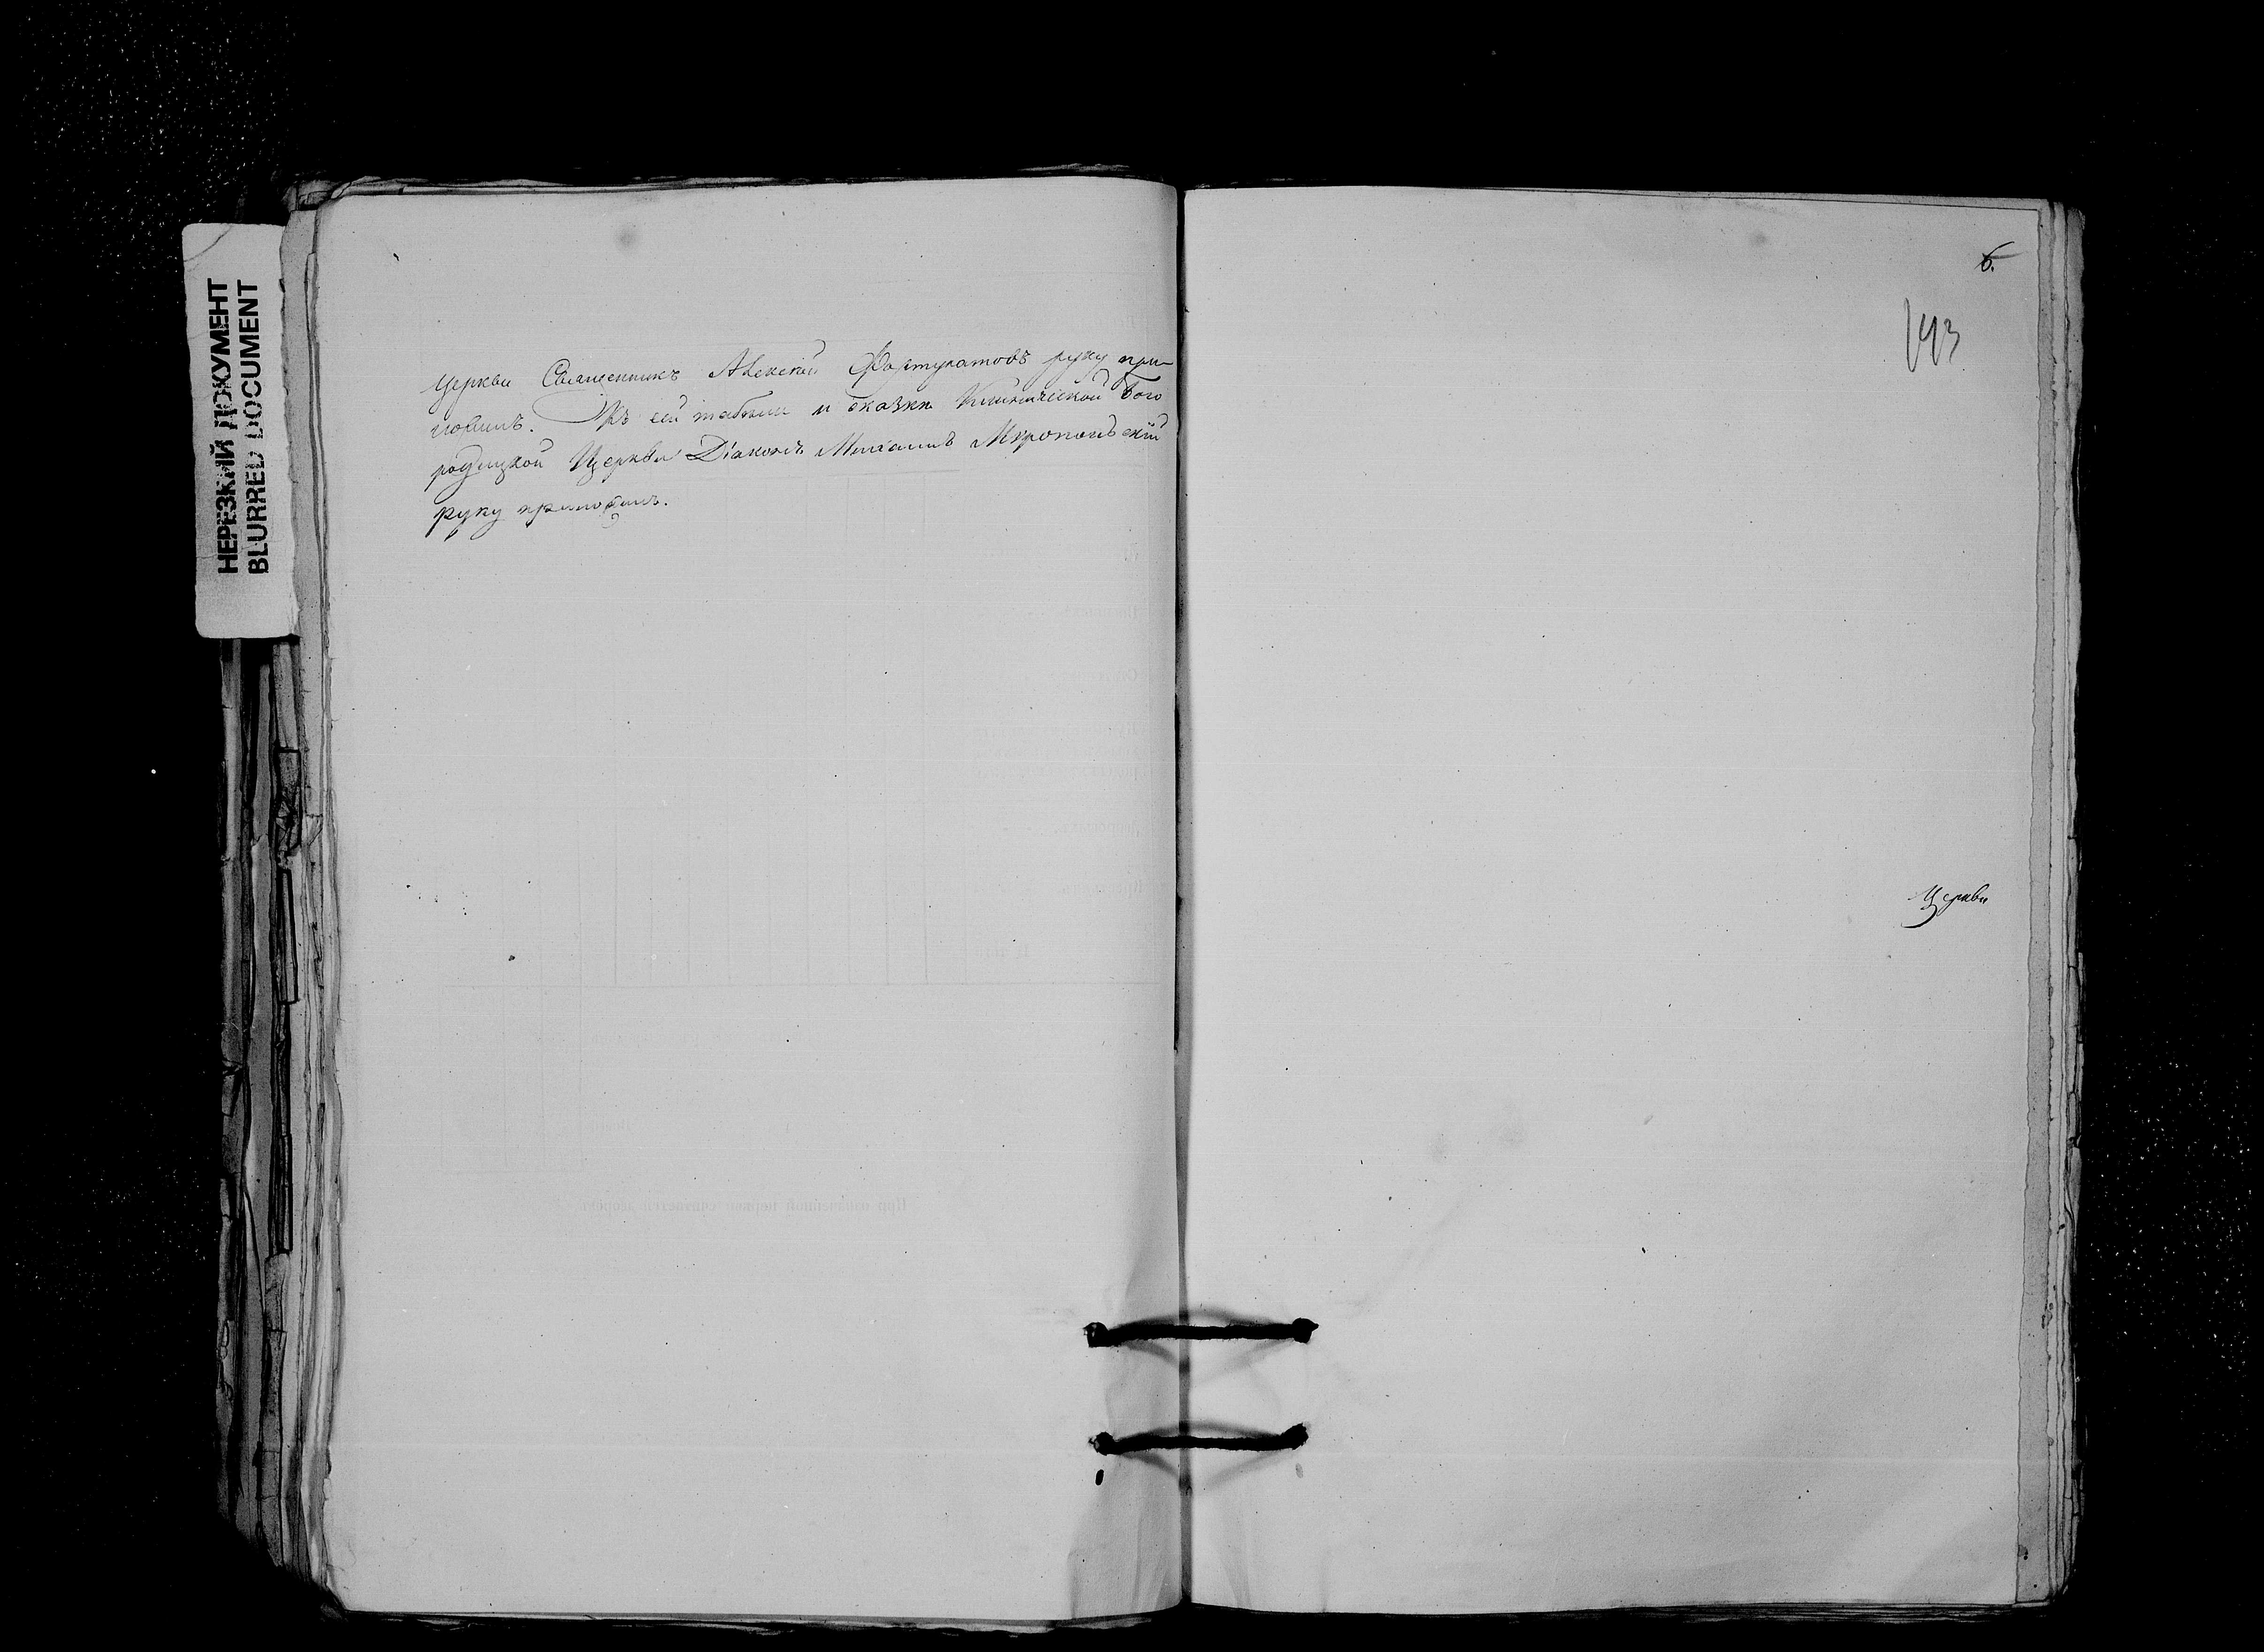 НЕРЕЗКИЙ ДОКУМЕНТ
BLURRED DOCUMENT
Церкви Священникъ Алексѣй Фортунатовъ руку при-
ложилъ. Къ сей табели и сказки Клинической Бого
родицкой Церкви Діаконъ Михаилъ Миропольскій
руку приложилъ.
6.
143
Церкви